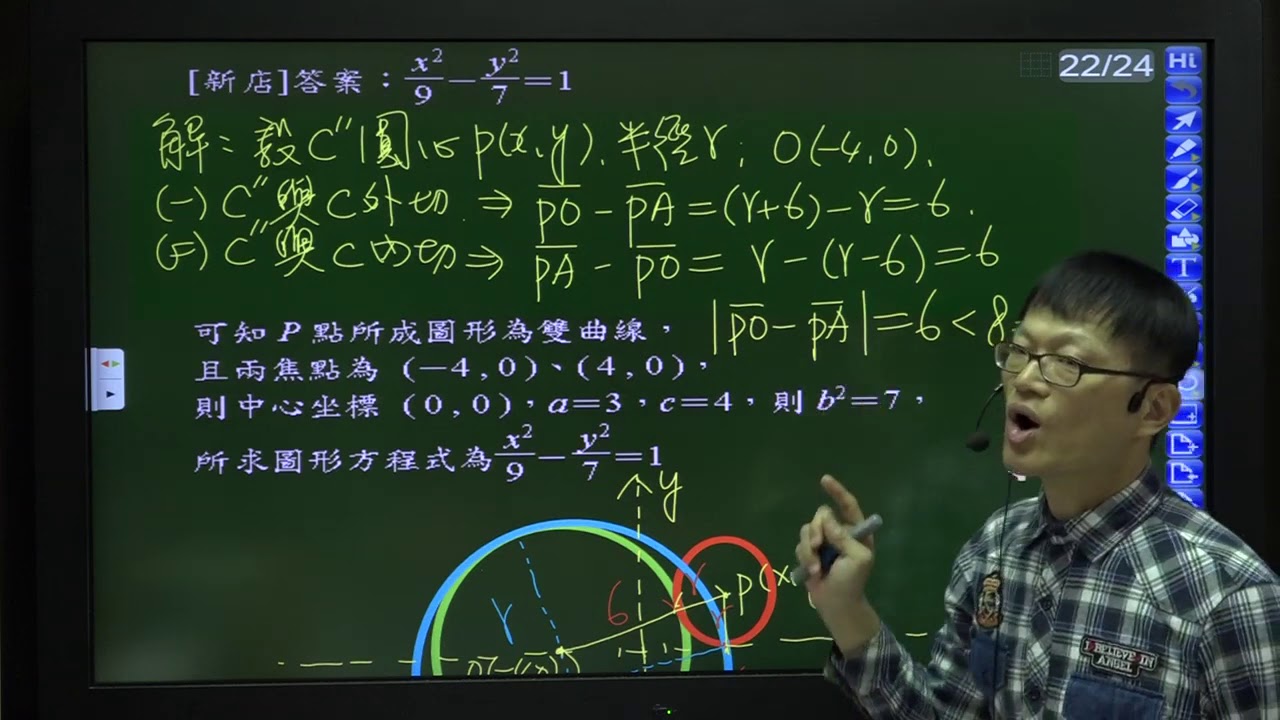 [新店]答案：x²/9−y²/7=1
22/24
Hi
解：設C''圓心P(x,y)、半徑r，O(-4,0)、
(一) C''與C外切 ⇒ P̅O̅ - P̅A̅ = (r+6)-r=6.
(二) C''與C內切 ⇒ P̅A̅ - P̅O̅ = r-(r-6)=6
|P̅O̅ - P̅A̅|=6<8
可知 P 點所成圖形為雙曲線，
且兩焦點為 (−4,0)、(4,0)，
則中心坐標 (0,0)，a=3，c=4，則 b²=7，
所求圖形方程式為x²/9−y²/7=1
y
r
6
r
P(x
T
I BELIEVE IN
ANGEL